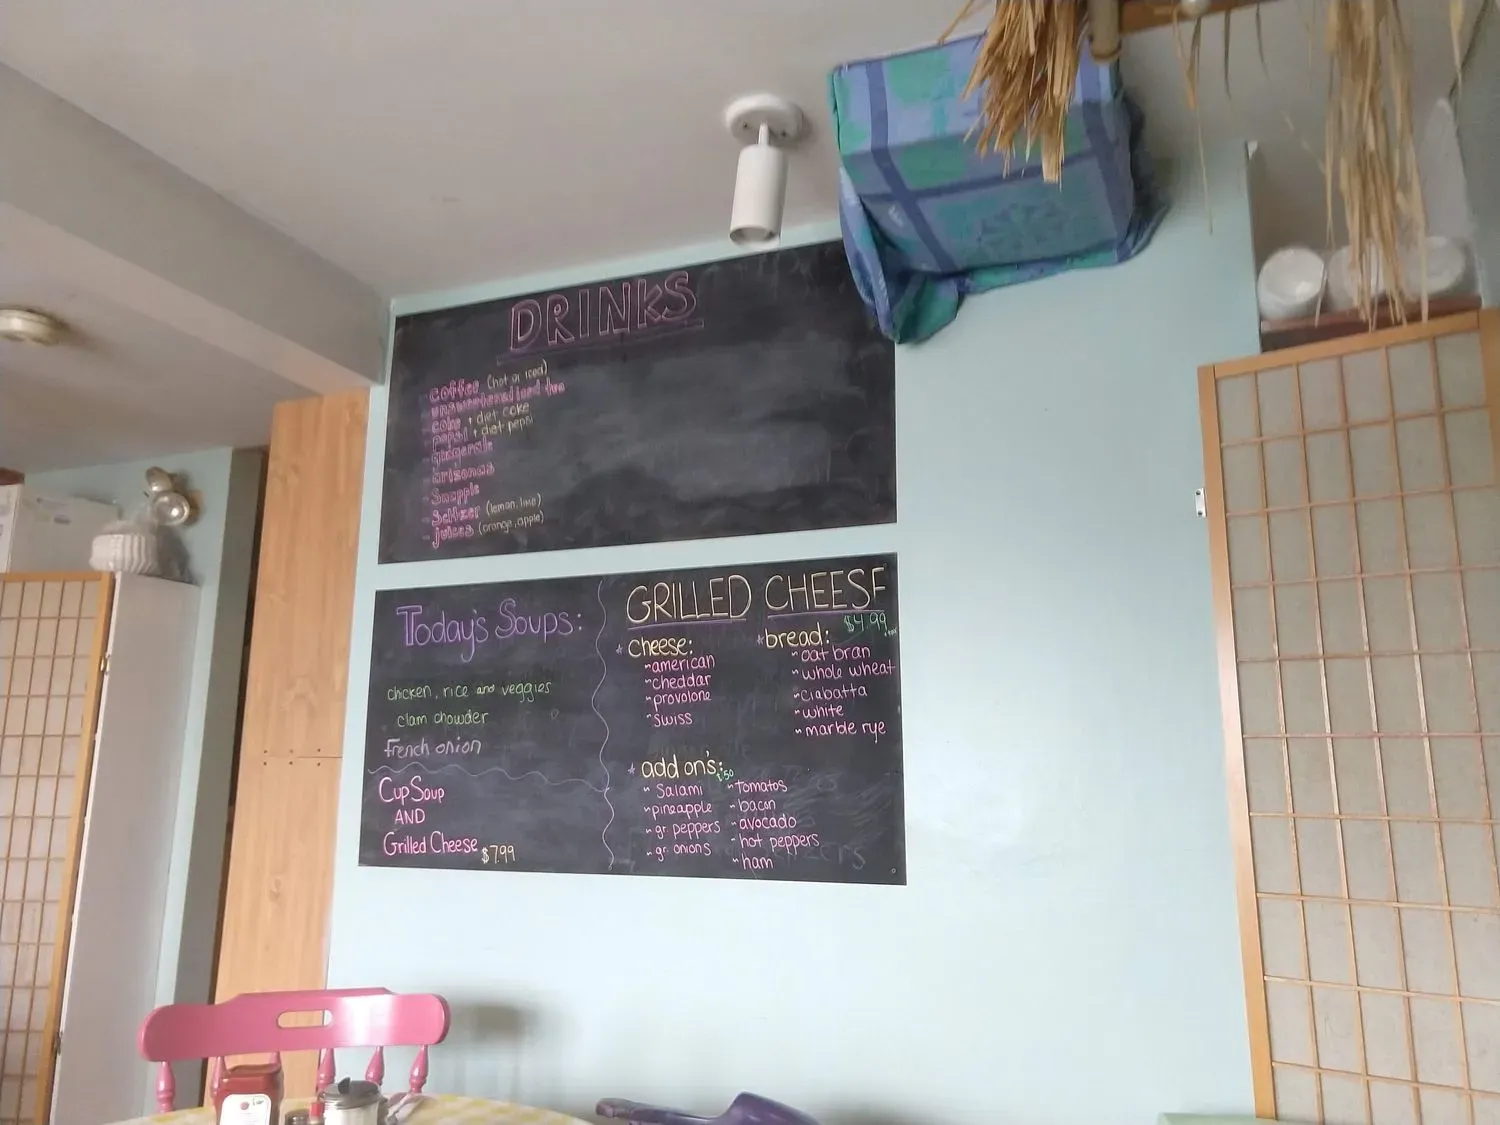 DRINKS
- coffee (hot or iced)
- unsweetened iced tea
- coke + diet coke
- pepsi + diet pepsi
- gingerale
- arizonas
- Snapple
- seltzer (lemon, lime)
- juices (orange, apple)
Today's Soups:
chicken, rice and veggies
clam chowder
French onion
Cup Soup
AND
Grilled Cheese $7.99
GRILLED CHEESE
$4.99
* cheese:
~american
~cheddar
~provolone
~swiss
*bread:
~oat bran
~whole wheat
~ciabatta
~white
~marble rye
* add on's:
~ Salami
~pineapple
~gr. peppers
~gr. onions
~tomatos
~bacon
~avocado
~hot peppers
~ham